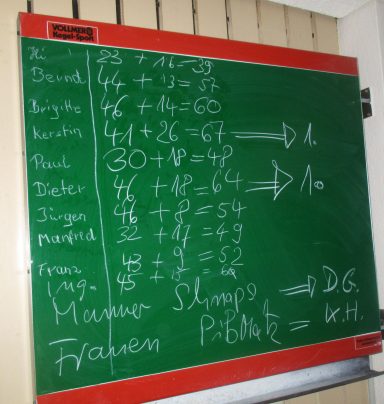 VOLLMER
Kegel-Sport
Hi 23 + 16 = 39
Bernd 44 + 13 = 57
Brigitte 46 + 14 = 60
Kerstin 41 + 26 = 67 ⇒ 1.
Paul 30 + 18 = 48
Dieter 46 + 18 = 64 ⇒ 1.
Jürgen 46 + 8 = 54
Manfred 32 + 17 = 49
Franz 43 + 9 = 52
Ing. 45 + 15 = 60
Männer Shnaps ⇒ D.G.
Frauen = K.H.